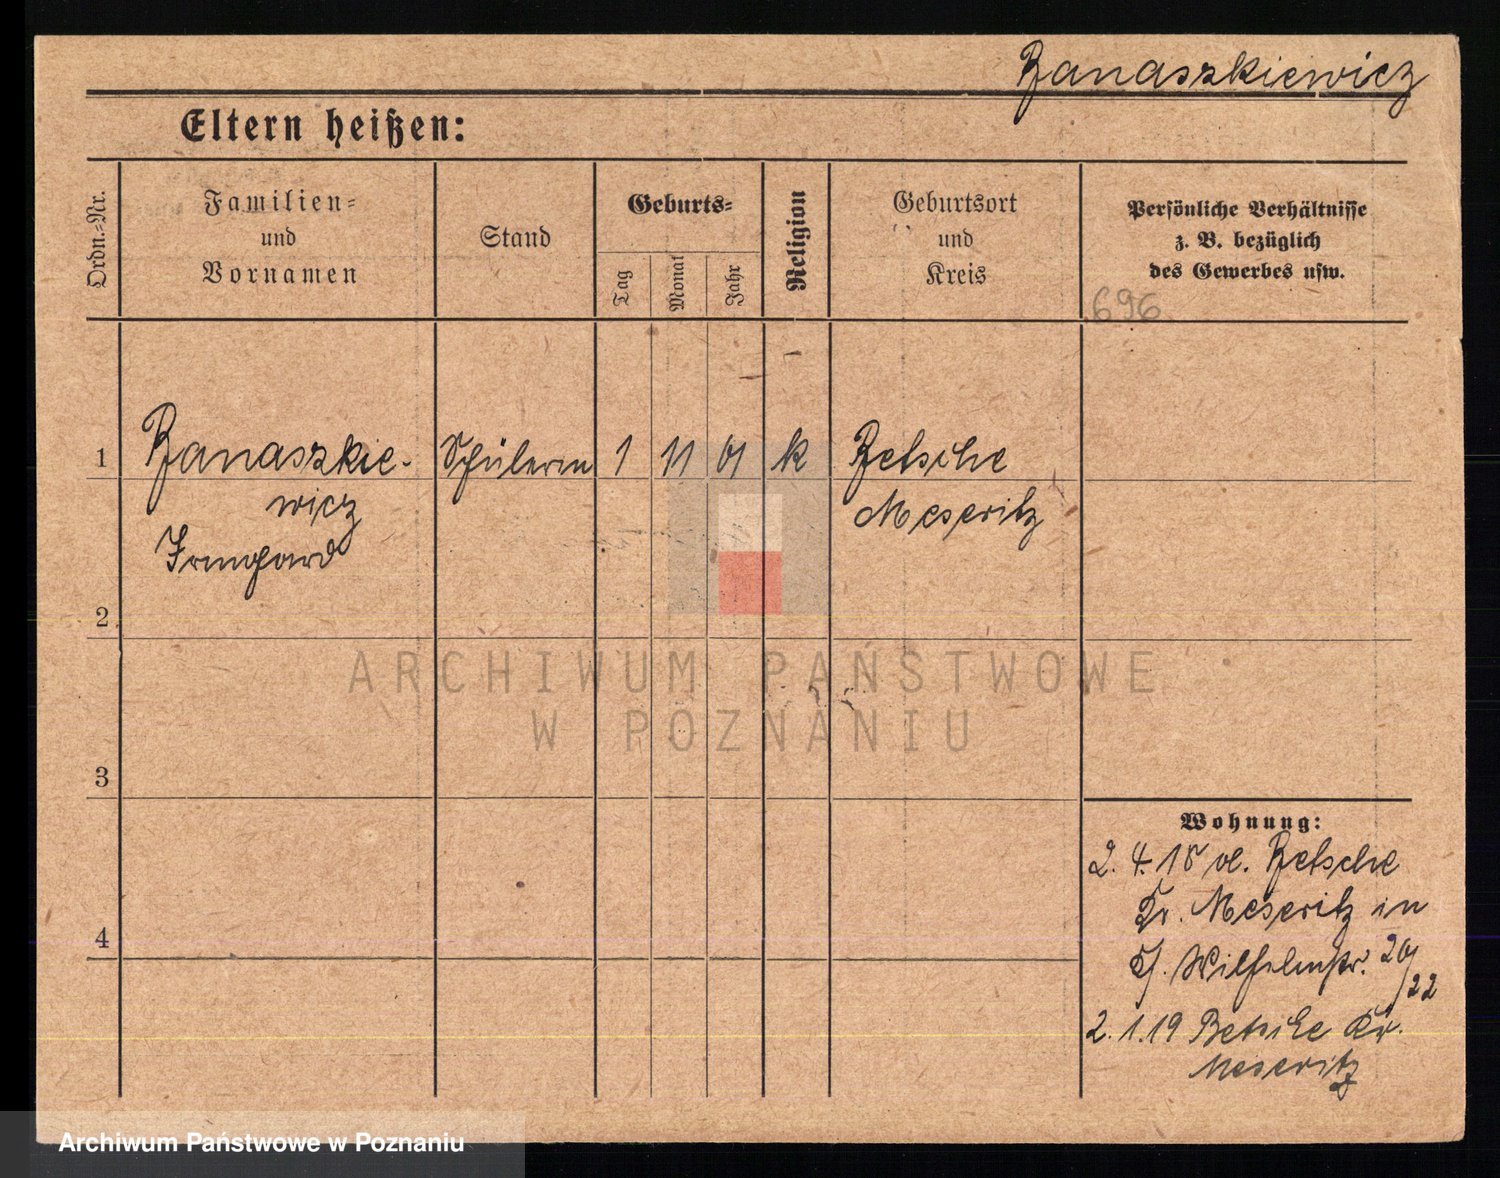 Banaszkiewicz
Eltern heißen:
Ordn.-Nr.
Familien-
und
Vornamen
Stand
Geburts-
Tag
Monat
Jahr
Religion
Geburtsort
und
Kreis
Persönliche Verhältnisse
z. B. bezüglich
des Gewerbes usw.
696
1 Banaszkie- Schülerin 1 11 01 k Betsche
wicz Meseritz
Irmgard
2
3
4
Wohnung:
2. 4. 18 vl. Betsche
Kr. Meseritz in
Wilhelmstr. 20/22
2. 1. 19 Betsche Kr.
Meseritz
ARCHIWUM PAŃSTWOWE
W POZNANIU
Archiwum Państwowe w Poznaniu